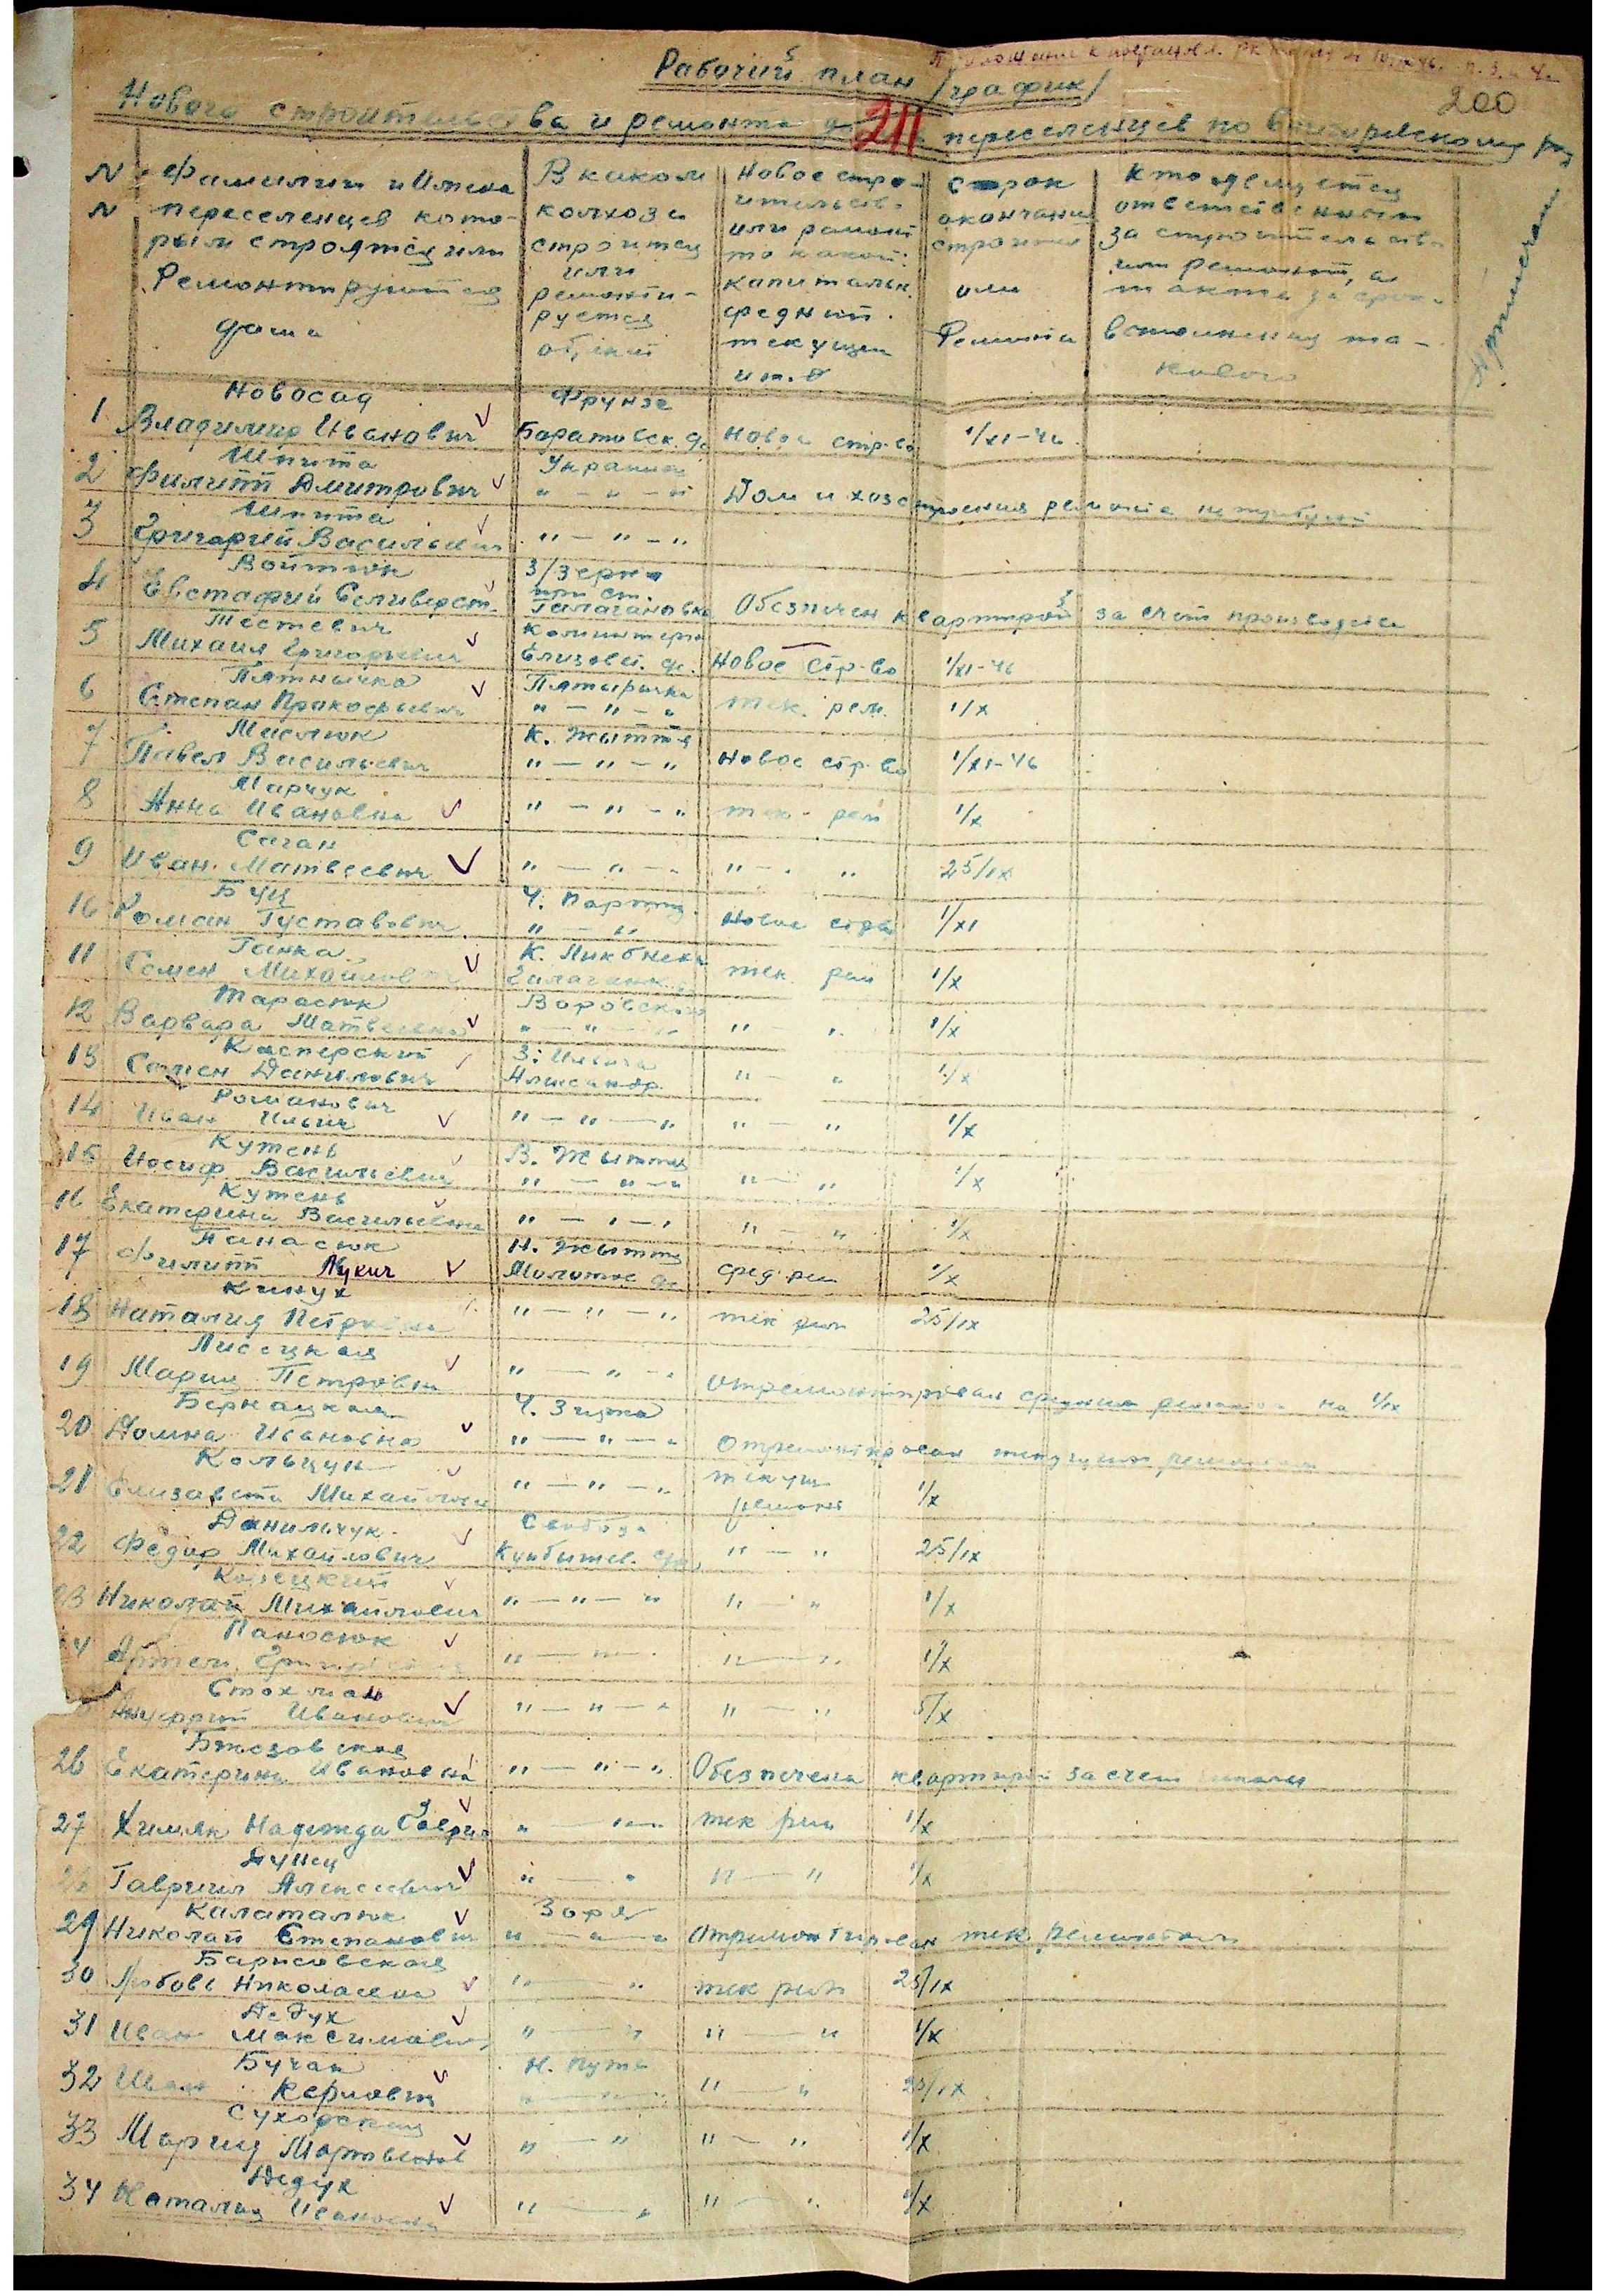 Рабочий план /график/
200
Нового строительства и ремонта 211 переселенцев по
N N
Фамилии и Имена переселенцев кото-рым строятся или Ремонтируются дома
В каком колхозе строится или ремонти-руется объект
Новое стро-ительств. или ремонт то какой: капитальн. средний. текущий и т.д
Срок окончания строит или Ремонта
Кто является ответственным за строительство или ремонт, а также за срок выполнения та-кового
Примечание
1 Новосад Владимир Иванович Фрунзе Новое стр-во 1/XI-46
2 Шпита Филипп Дмитрович Украина " - " - " Дом и хоз строения ремонта не требует
3 Шпита Григорий Васильевич " - " - "
4 Войтюк Евстафий Селиверст. З/зерно при ст. Галагановка Обеспечен квартирой за счет производства
5 Тестевич Михаил Григорьевич Коминтерн Елизовет. Новое стр-во 1/XI-46
6 Пятнычка Степан Прокофьевич Пятырычка " - " - " тек. рем. 1/X
7 Маслюк Павел Васильевич К. Жыття " - " - " Новое стр-во 1/XI-46
8 Марчук Анна Ивановна " - " - " тек. рем 1/X
9 Саган Иван Матвеевич " - " - " " - " 25/IX
10 Буц Роман Густавович Ч. Партиз. " - " Новое стр-во 1/XI
11 Ганка Семен Михайлович К. Либкнехт тек. рем 1/X
12 Тарасюк Варвара Матвеевна Воровского " - " - " " - " 1/X
13 Касперский Семен Данилович З. Ильича Александр. " - " 1/X
14 Романович Иван Ильич " - " - " " - " 1/X
15 Кутень Иосиф Васильевич В. Жыття " - " - " " - " 1/X
16 Кутень Екатерина Васильевна " - " - " " - " 1/X
17 Панасюк Филипп Лукич Н. Жыття сред рем 1/X
18 Кинух Наталия Петровна " - " - " тек рем 25/IX
19 Лисецкая Мария Петровна " - " - " Отремонтирован средним ремонтом на 1/IX
20 Бернацкая Домна Ивановна Ч. Зирка " - " - " Отремонтирован текущим ремонтом
21 Кольцун Елизавета Михайловна " - " - " текущ ремонт 1/X
22 Данильчук Федор Михайлович Свобода Куйбышев. " - " 25/IX
23 Корецкий Николай Михайлович " - " - " " - " 1/X
24 Панасюк Артем " - " " - " 1/X
Стохман Ануфрий Иванович " - " - " " - " 5/X
26 Екатерина Ивановна " - " - " Обеспечена квартирой за счет школы
27 Химяк Надежда Гаврил " " тек рем 1/X
Дунец Гавриил Алексеевич " " " - " 1/X
29 Калаталюк Николай Степанович Заря " - " - " Отремонтирован тек ремонтом
30 Барисовская Любовь Николаевна " " тек рем 25/IX
31 Дедух Иван Максимович " - " " - " 1/X
32 Бучак Иван Карпович Н. Путь " - " 25/IX
33 Сухорская Мария " - " " - " 1/X
34 Дедух Наталия Ивановна " - " " - " 1/X